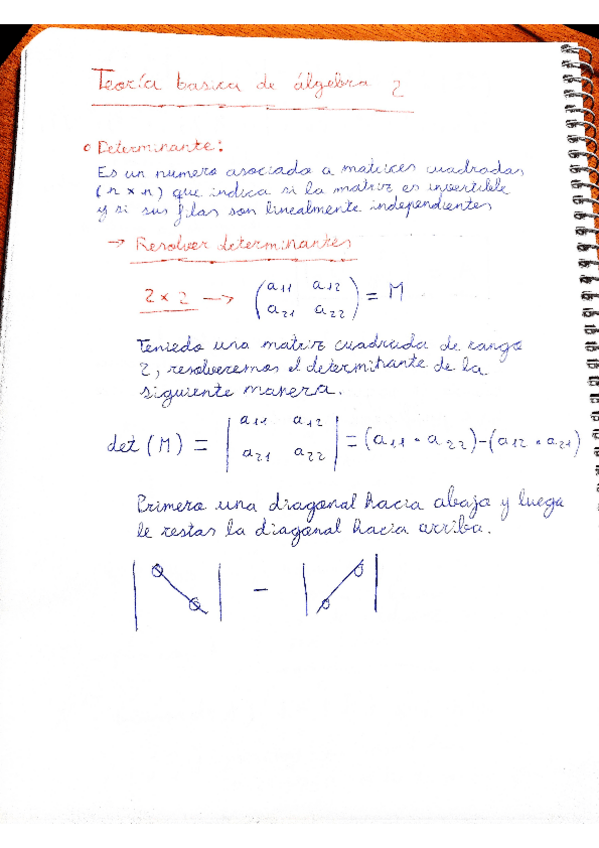 Teoría basica de álgebra 2
• Determinante:
Es un numero asociado a matrices cuadradas
(n × n) que indica si la matriz es invertible
y si sus filas son linealmente independientes
→ Resolver determinantes
2 × 2 → (a11 a12 = M
a21 a22)
Teniedo una matriz cuadrada de rango
2, resolveremos el determinante de la
siguiente manera.
det (M) = |a11 a12| = (a11 · a22) - (a12 · a21)
|a21 a22|
Primero una diagonal hacia abajo y luego
le restas la diagonal hacia arriba.
| | - | |